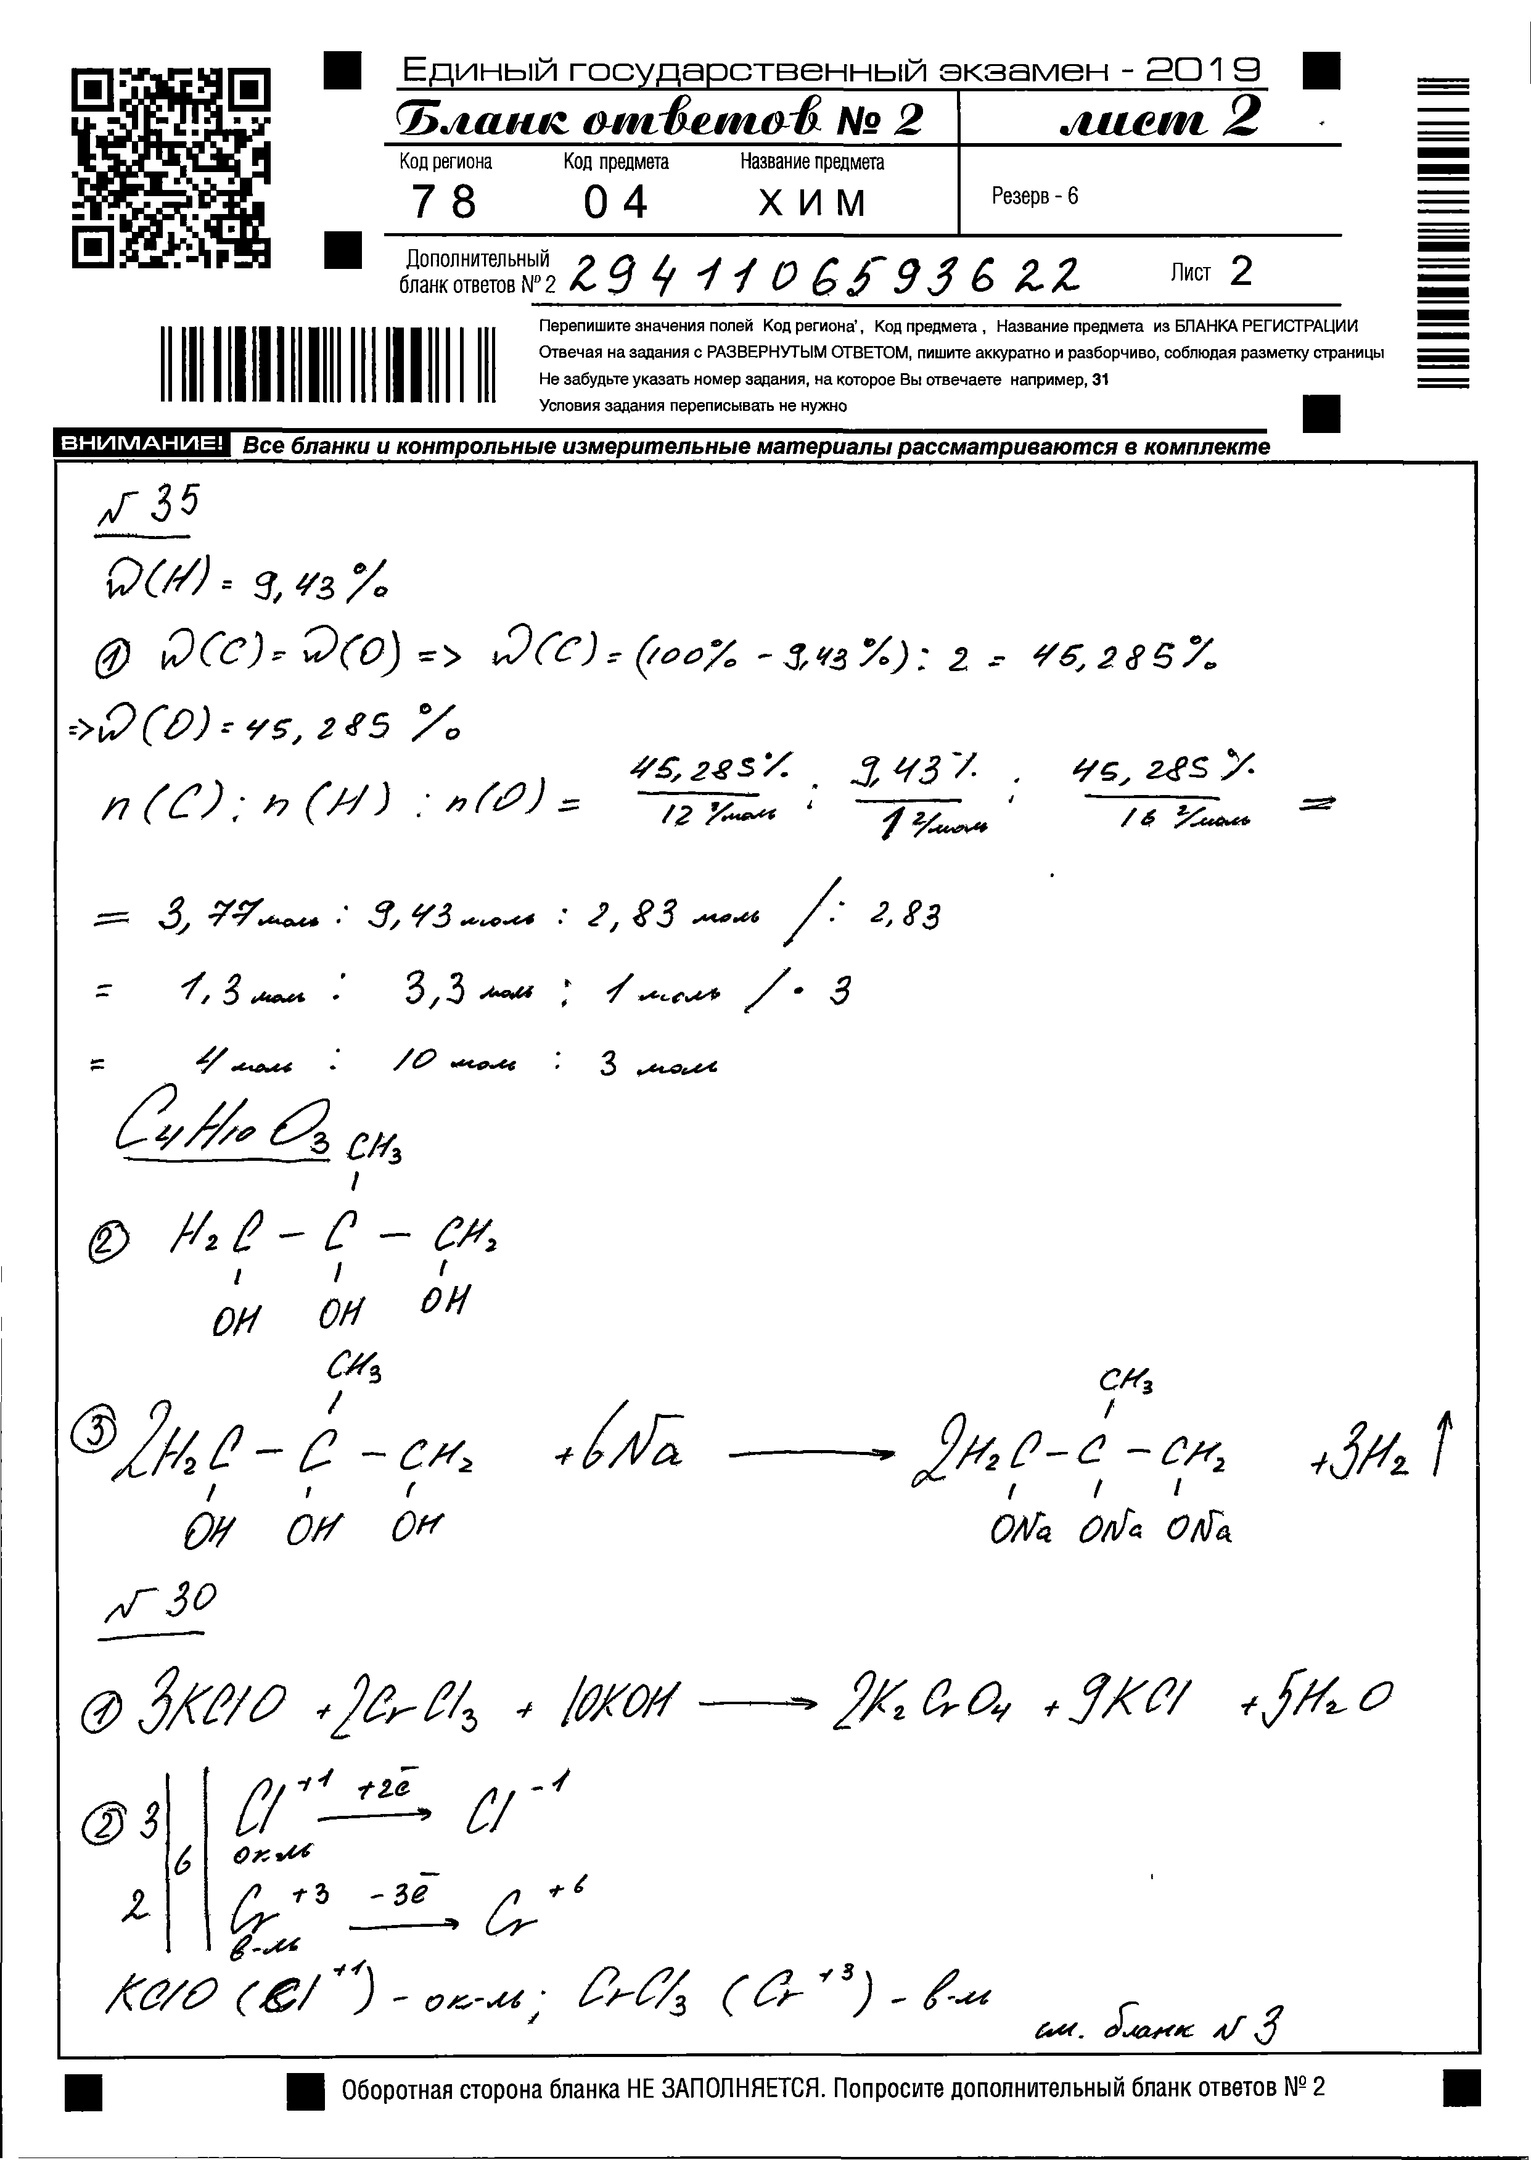 Единый государственный экзамен - 2019
Бланк ответов № 2 лист 2
Код региона Код предмета Название предмета
78 04 ХИМ Резерв - 6
Дополнительный бланк ответов № 2 2941106593622 Лист 2
Перепишите значения полей Код региона', Код предмета , Название предмета из БЛАНКА РЕГИСТРАЦИИ
Отвечая на задания с РАЗВЕРНУТЫМ ОТВЕТОМ, пишите аккуратно и разборчиво, соблюдая разметку страницы
Не забудьте указать номер задания, на которое Вы отвечаете например, 31
Условия задания переписывать не нужно
ВНИМАНИЕ! Все бланки и контрольные измерительные материалы рассматриваются в комплекте
N 35
W(H) = 9,43%
① W(C) = W(O) => W(C) = (100% - 9,43%) : 2 = 45,285%
=> W(O) = 45,285 %
n(C) : n(H) : n(O) = 45,285% / 12 г/моль : 9,43% / 1 г/моль : 45,285% / 16 г/моль =
= 3,77 моль : 9,43 моль : 2,83 моль / : 2,83
= 1,3 моль : 3,3 моль : 1 моль / · 3
= 4 моль : 10 моль : 3 моль
C4H10O3
CH3
② H2C - C - CH2
OH OH OH
CH3 CH3
③ 2H2C - C - CH2 + 6Na ⟶ 2H2C - C - CH2 + 3H2 ↑
OH OH OH ONa ONa ONa
N 30
① 3KClO + 2CrCl3 + 10KOH ⟶ 2K2CrO4 + 9KCl + 5H2O
② 3 | | Cl⁺¹ +2ē ⟶ Cl⁻¹
6 ок-ль
2 | | Cr⁺³ -3ē ⟶ Cr⁺⁶
в-ль
KClO (Cl⁺¹) - ок-ль; CrCl3 (Cr⁺³) - в-ль
см. бланк N 3
Оборотная сторона бланка НЕ ЗАПОЛНЯЕТСЯ. Попросите дополнительный бланк ответов № 2